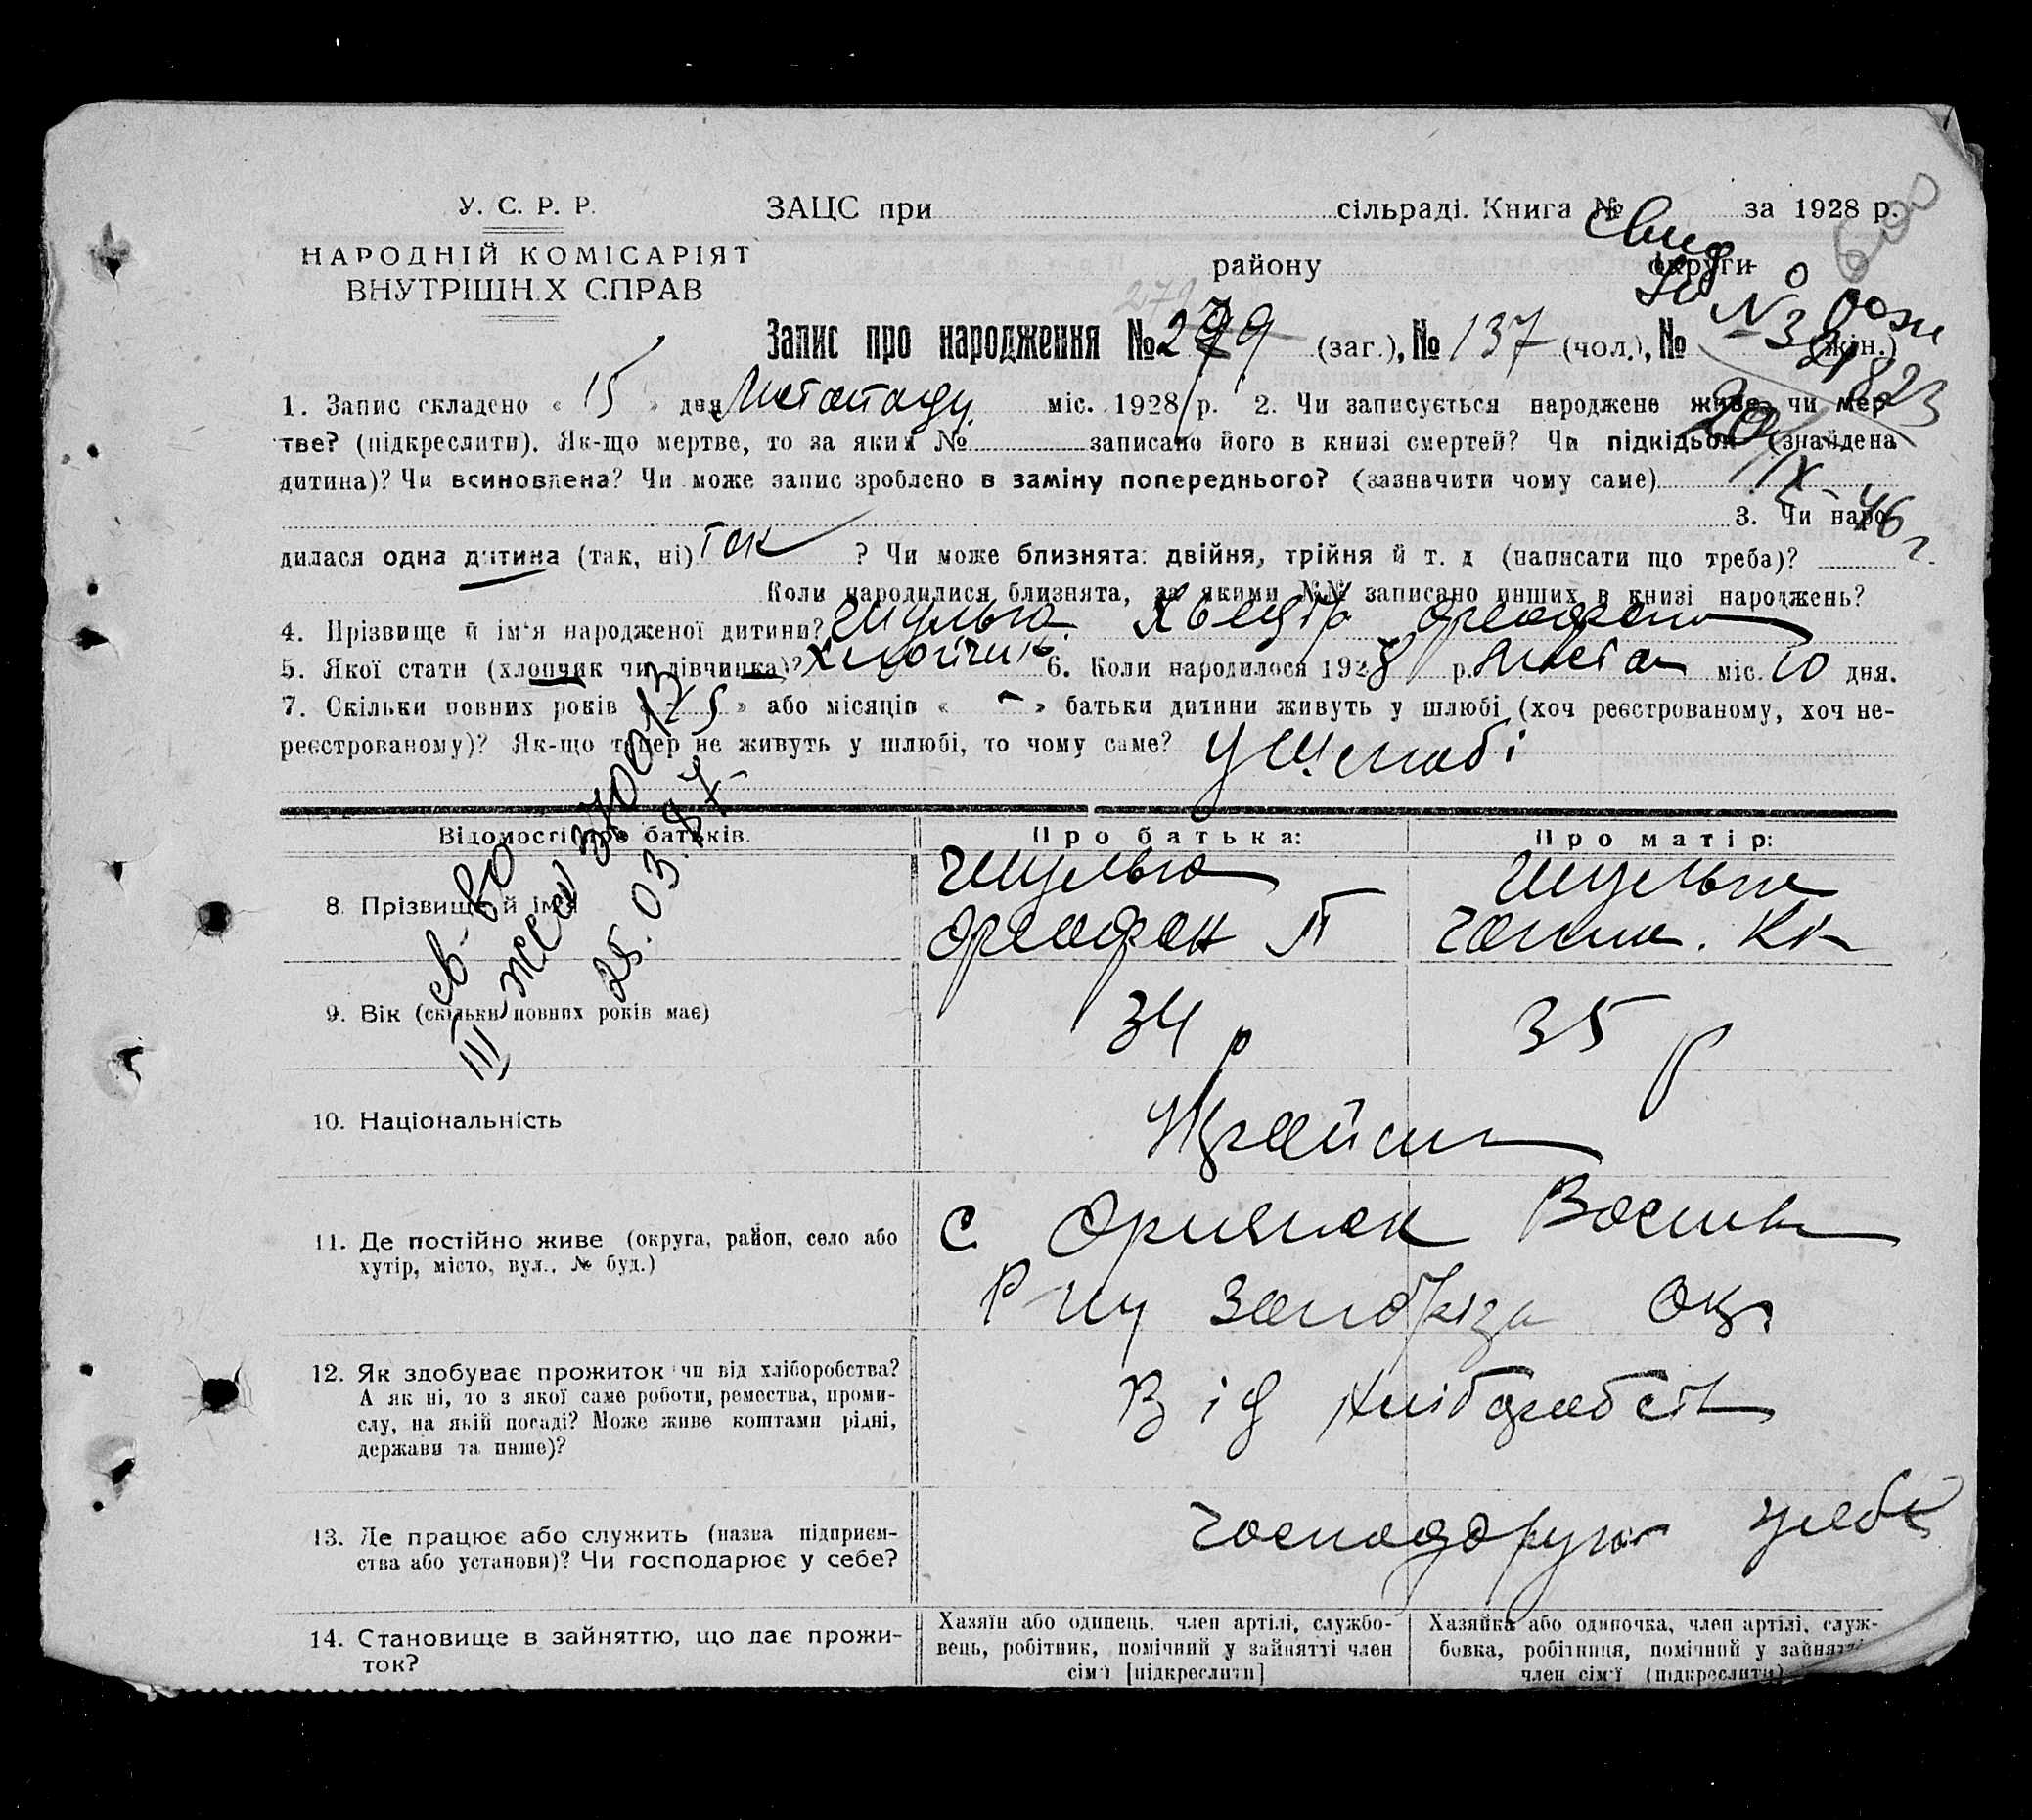 У. С. Р. Р.
НАРОДНІЙ КОМІСАРІЯТ
ВНУТРІШН.Х СПРАВ
ЗАЦС при сільраді. Книга № за 1928 р.
району округи
Запис про народження № 279 (заг.), № 137 (чол.), № (жін.)
1. Запис складено « 15 » дня Листопаду міс. 1928 р. 2. Чи записується народжене живе, чи мер-
тве? (підкреслити). Як-що мертве, то за яким № записано його в книзі смертей? Чи підкідьок (знайдена
дитина)? Чи всиновлена? Чи може запис зроблено в заміну попереднього? (зазначити чому саме)
3. Чи наро-
дилася одна дитина (так, ні) так ? Чи може близнята: двійня, трійня й т. д (написати що треба)?
Коли народилися близнята, за якими №№ записано инших в книзі народжень?
4. Прізвище й ім'я народженої дитини? Шульга
5. Якої стати (хлопчик чи дівчинка)? хлопчик 6. Коли народилося 1928 р. Листоп міс. 10 дня.
7. Скільки повних років « » або місяців « - » батьки дитини живуть у шлюбі (хоч реєстрованому, хоч не-
реєстрованому)? Як-що тепер не живуть у шлюбі, то чому саме? у шлюбі
Відомості про батьків. Про батька: Про матір:
8. Прізвище й ім'я Шульга Шульга
9. Вік (скільки повних років має) 34 р 35 р
10. Національність Україн
11. Де постійно живе (округа, район, село або
хутір, місто, вул., № буд.)
с.
Р-ну Запоріз Окр
12. Як здобуває прожиток чи від хліборобства?
А як ні, то з якої саме роботи, ремества, проми-
слу, на якій посаді? Може живе коштами рідні,
держави та инше)?
Від хліборобств
13. Де працює або служить (назва підприєм-
ства або установи)? Чи господарює у себе?
господарує у себе
14. Становище в зайняттю, що дає прожи-
ток?
Хазяїн або одинець, член артілі, службо-
вець, робітник, помічний у зайнятті член
сім'ї [підкреслити]
Хазяйка або одиночка, член артілі, служ-
бовка, робітниця, помічний у зайнятті
член сім'ї (підкреслити)
св-во
25.03.